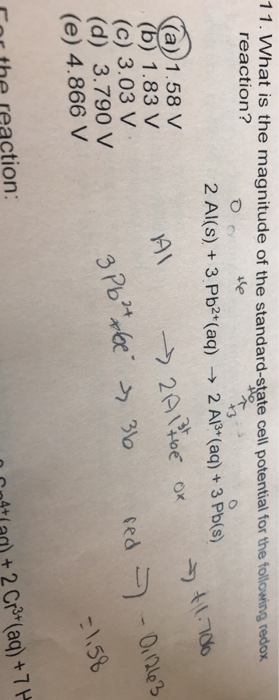 11. What is the magnitude of the standard-state cell potential for the following redox
reaction?
+6
0 +3 0
2 Al(s) + 3 Pb²⁺(aq) → 2 Al³⁺(aq) + 3 Pb(s)
(a) 1.58 V
(b) 1.83 V
(c) 3.03 V
(d) 3.790 V
(e) 4.866 V
Al → 2Al³⁺ + 6e⁻ ox → +1.706
3 Pb²⁺ + 6e⁻ → 3b red → -0.1263
= 1.58
For the reaction:
+ 2 Cr³⁺(aq) + 7 H